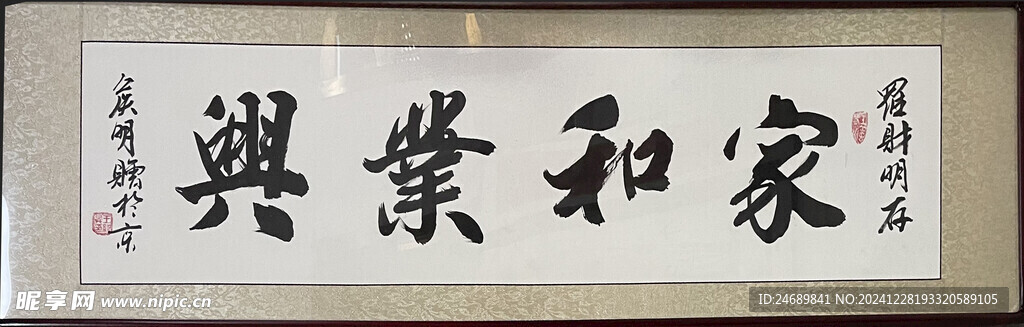 羅財明存
家和業興
侯明贈於京
昵享网 www.nipic.cn
ID:24689841 NO:20241228193320589105